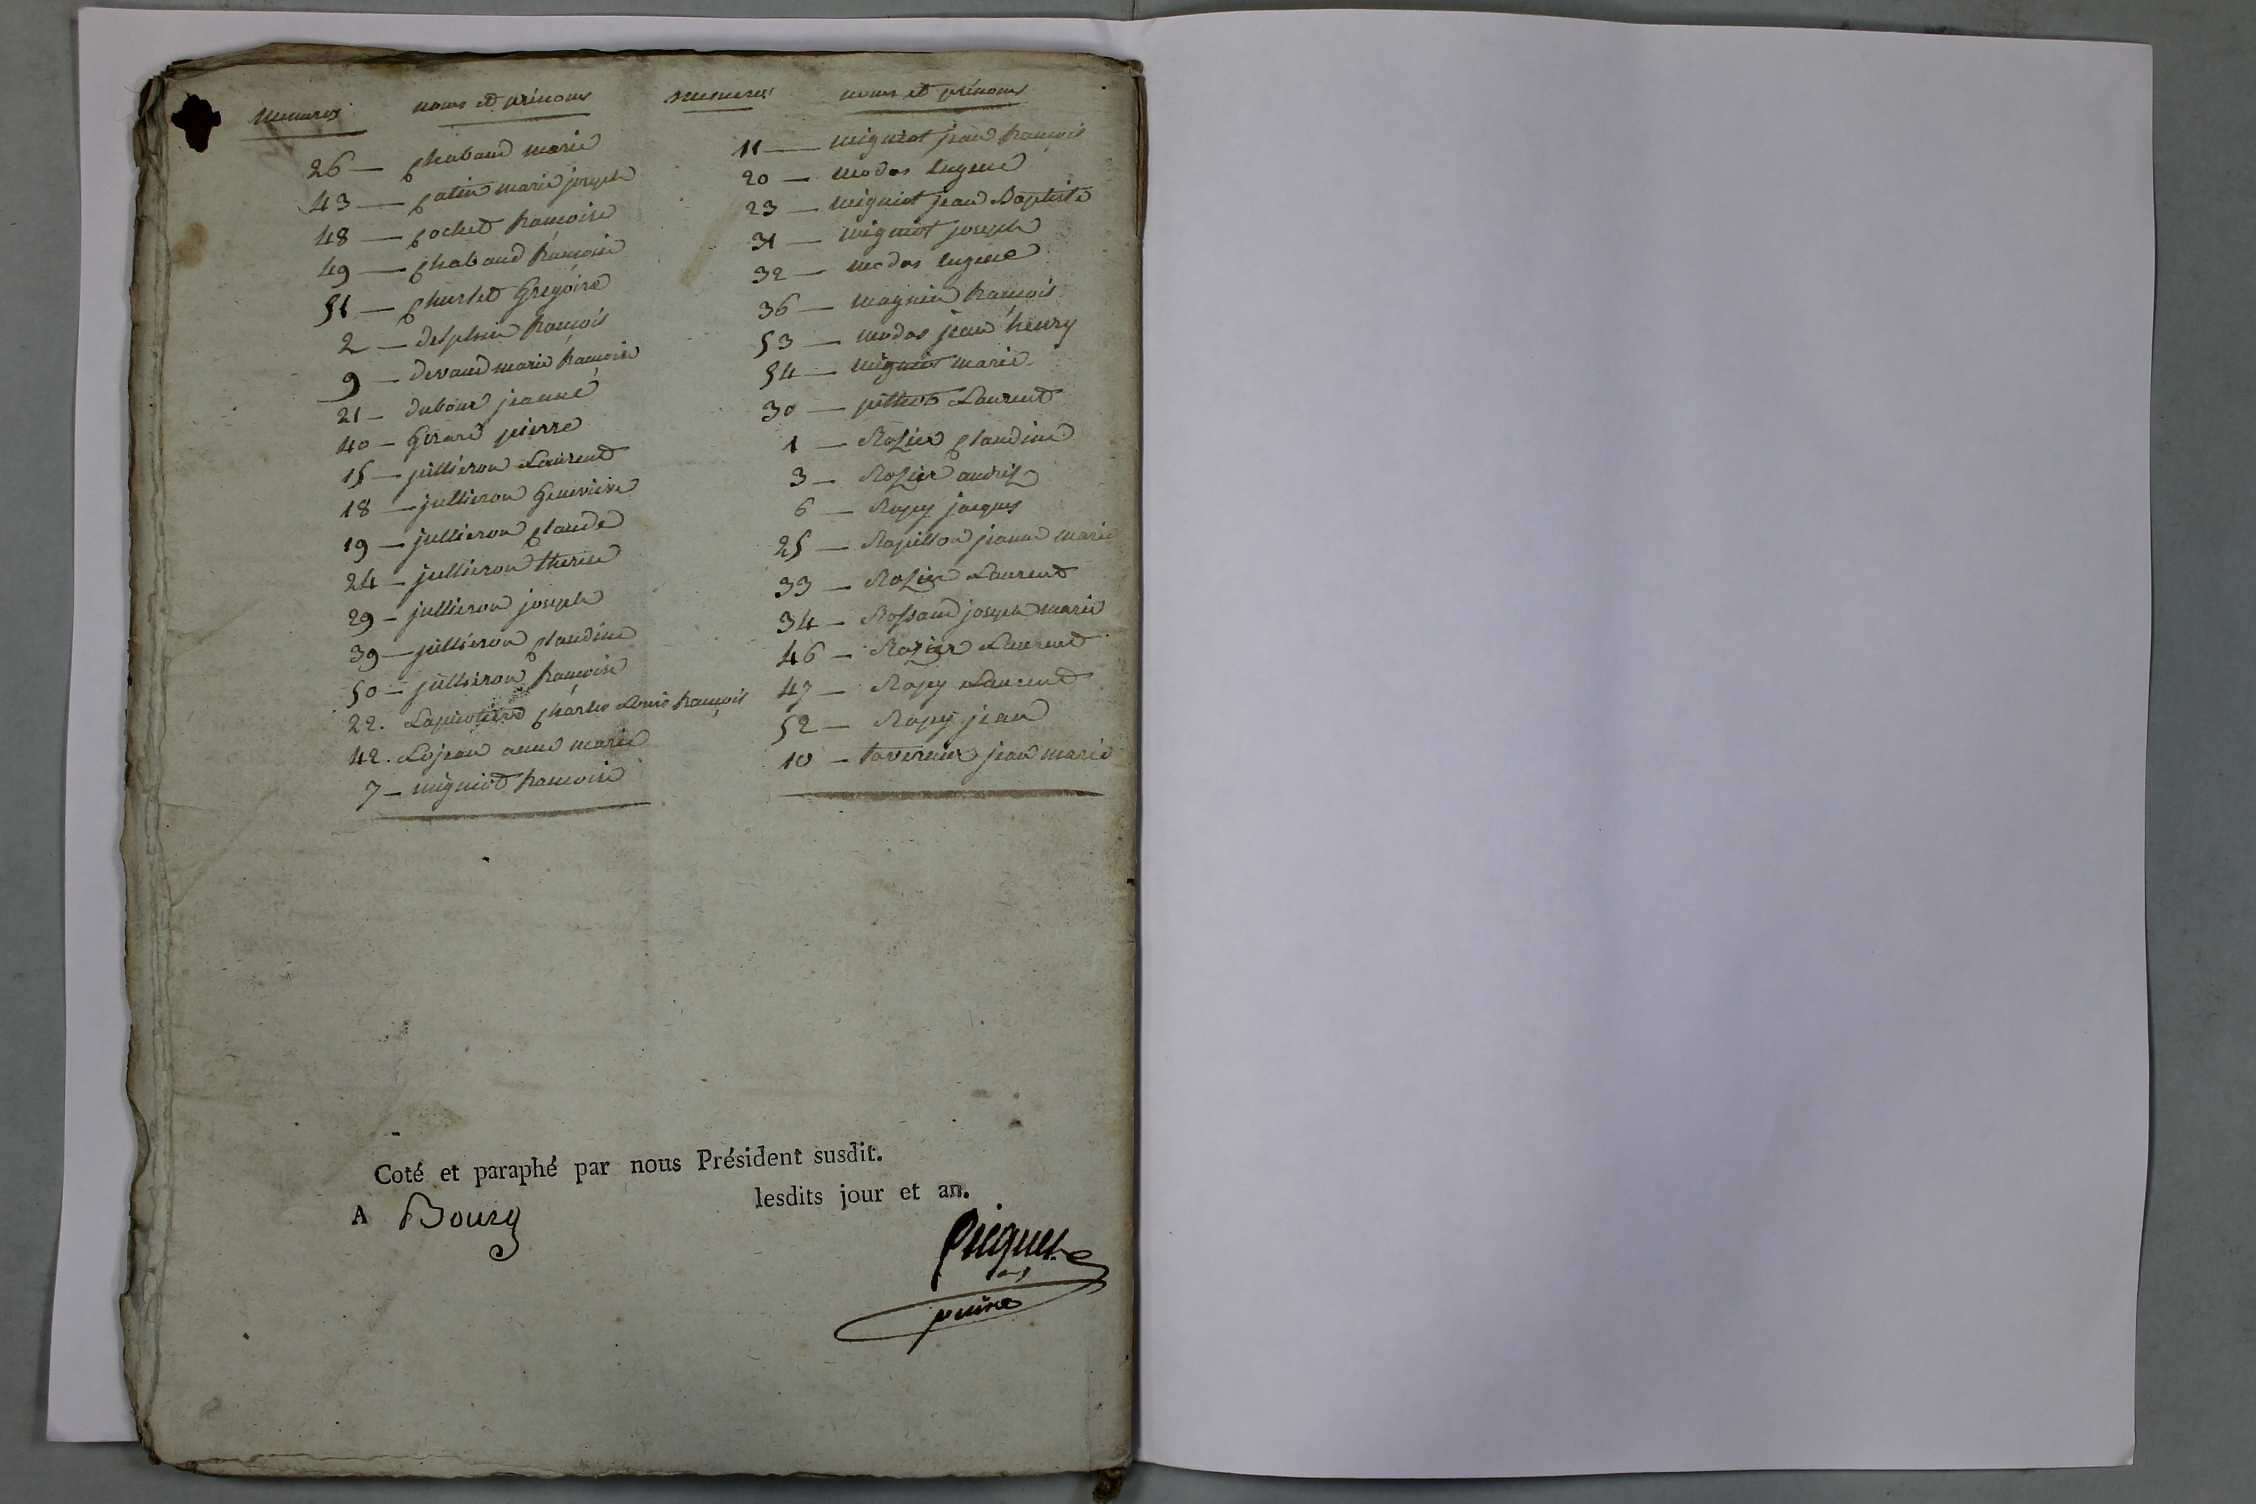 numeros noms et prénoms
26 — Chabaud marie
43 — Catin marie joseph
48 — Cochet françoise
49 — Chabaud françoise
51 — Churlet Grégoire
2 — desplan françois
9 — devaud marie françoise
21 — dubour jeanne
40 — Girard pierre
15 — jullieron Laurent
18 — jullieron Genevieve
19 — jullieron Claude
24 — jullieron therese
29 — jullieron joseph
39 — jullieron Claudine
50 — jullieron françoise
22. Charles Louis françois
42. Lojean anne marie
7 — migniot françoise
numeros noms et prénoms
11 — migniot jean françois
20 — modas Eugene
23 — migniot jean Baptiste
31 — migniot joseph
32 — modas Eugene
36 — magnin françois
53 — modas jean henry
54 — migniot marie
30 — Laurent
1 — Rozier Claudine
3 — Rozier andré
6 — Rapy jacques
25 — Rapillon jeanne marie
33 — Rozier Laurent
34 — Rossand joseph marie
46 — Rozier Laurent
47 — Rapy Laurent
52 — Rapy jean
10 — tavernier jean marie
Coté et paraphé par nous Président susdit.
A Bourg lesdits jour et an.
Picquet
puiné